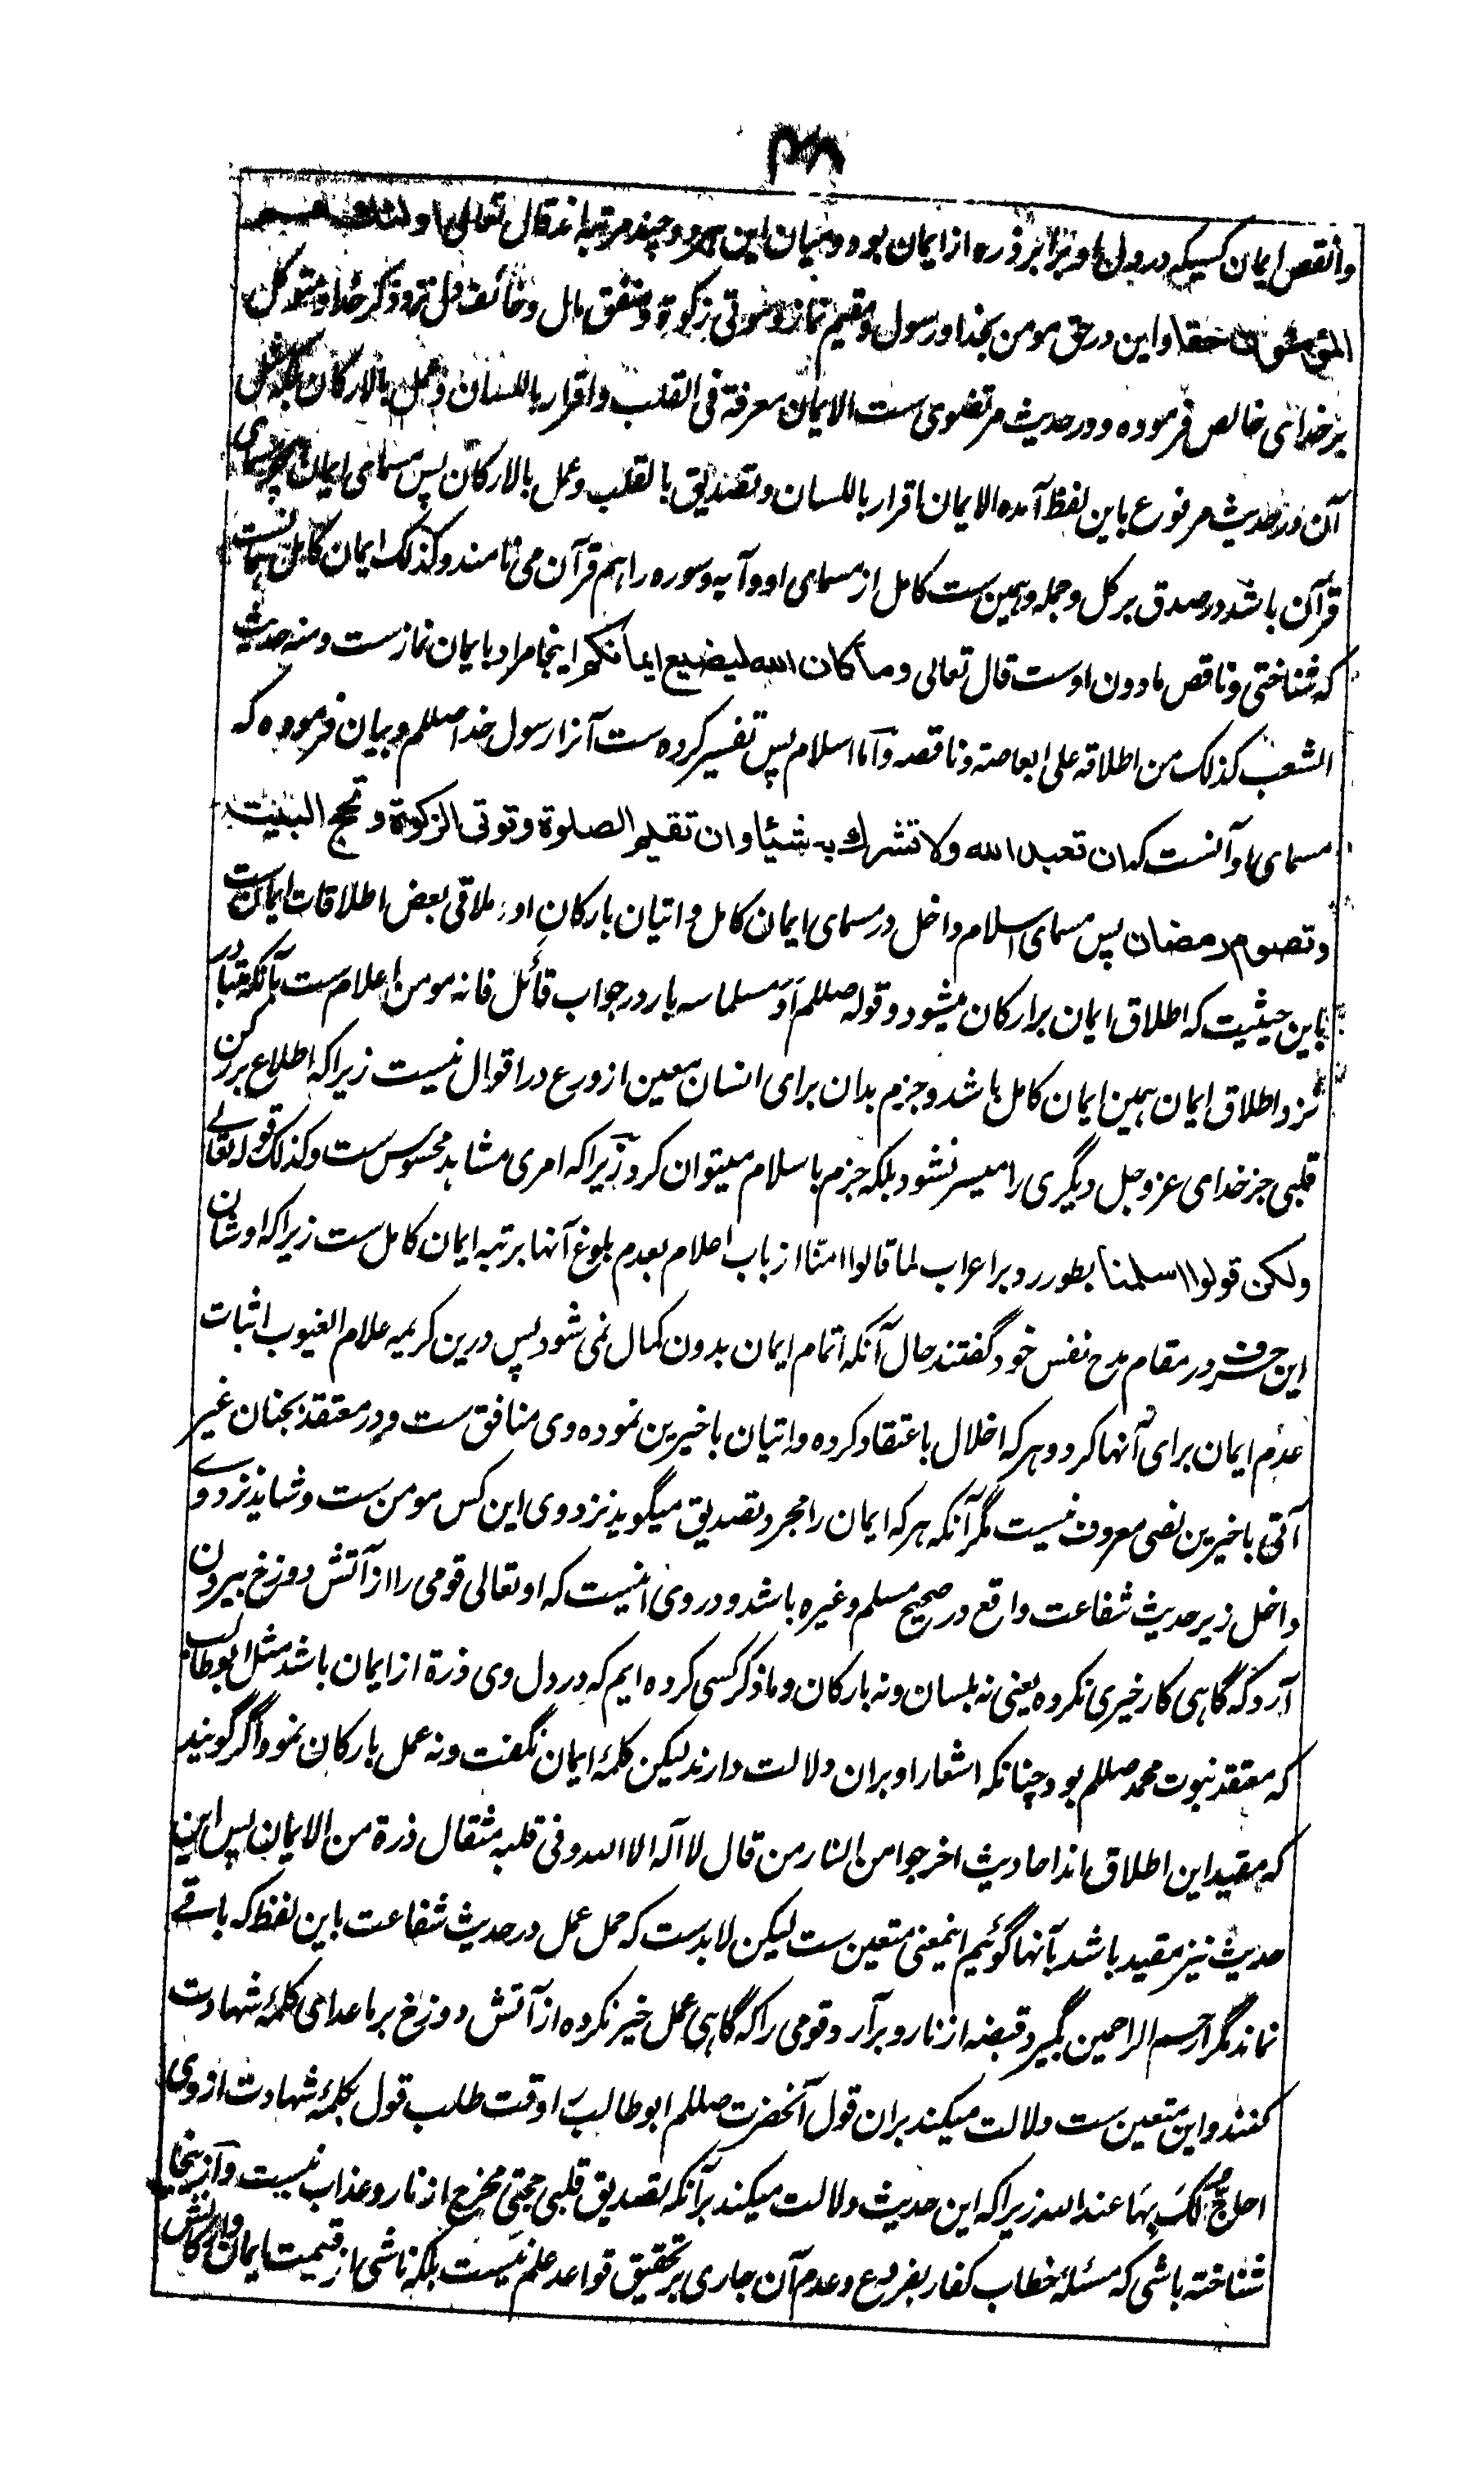 ۳۸
وانقص ایمان کسیکه در دل او برابر ذره از ایمان بود و میان این هر دو چند مرتبه اند قال تعالی اولئک هم
المؤمنون حقا و این در حق مومن بخدا و رسول و مقیم نماز و موتی زکوة و منفق مال و خائف دل نزد ذکر خدا و متوکل
بر خدای خالص فرموده و در حدیث مرتضوی ست الایمان معرفة فی القلب و اقرار باللسان و عمل بالارکان بلکه مثل
آن در حدیث مرفوع باین لفظ آمده الایمان اقرار باللسان و تصدیق بالقلب و عمل بالارکان پس مسمای ایمان همچو مسمای
قرآن باشد در صدق بر کل و جمله و همین ست کامل از مسمای او و آیه و سوره را هم قرآن می نامند و کذلک ایمان کامل همانست
که شناختی و ناقص مادون اوست قال تعالی وما کان الله لیضیع ایمانکم اینجا مراد بایمان نمازست و منه حدیث
الشعب کذلک من اطلاقه علی ابعاضه و ناقصه و اما اسلام پس تفسیر کرده ست آنرا رسول خدا صللم و بیان فرموده که
مسمای او آنست که ان تعبد الله ولا تشرک به شیئا وان تقیم الصلوة وتوتی الزکوة و تحج البیت
وتصوم رمضان پس مسمای اسلام داخل در مسمای ایمان کامل و اتیان بارکان او ملاقی بعض اطلاقات ایمان ست
باین حیثیت که اطلاق ایمان بر ارکان میشود و قوله صللم أو مسلما سه بار در جواب قائل فانه مومن اعلام ست بآنکه متبادر
نزد اطلاق ایمان همین ایمان کامل باشد و جزم بدان برای انسان معین از ورع در اقوال نیست زیرا که اطلاع بر رکن
قلبی جز خدای عز و جل دیگری را میسر نشود بلکه جزم باسلام میتوان کرد زیرا که امری مشاهد محسوس ست و کذلک قوله تعالی
ولکن قولوا اسلمنا بطور رد بر اعراب لما قالوا امنا از باب اعلام بعدم بلوغ آنها برتبه ایمان کامل ست زیرا که اوشان
این حرف در مقام مدح نفس خود گفتند حال آنکه اتمام ایمان بدون کمال نمی شود پس درین کریمه علام الغیوب اثبات
عدم ایمان برای آنها کرد و هر که اخلال باعتقاد کرده و اتیان باخیرین نموده وی منافق ست و در معتقد بجنان غیر
آتی باخیرین نصی معروف نیست مگر آنکه هر که ایمان را مجرد تصدیق میگوید نزد وی این کس مومن ست و شاید نزد وی
داخل زیر حدیث شفاعت واقع در صحیح مسلم و غیره باشد و در وی اینست که او تعالی قومی را از آتش دوزخ بیرون
آرد که گاهی کار خیری نکرده یعنی نه بلسان و نه بارکان و ما ذکر کسی کرده ایم که در دل وی ذرة از ایمان باشد مثل ابوطالب
که معتقد نبوت محمد صللم بود چنانکه اشعار او بران دلالت دارند لیکن کلمۀ ایمان نگفت و نه عمل بارکان نمود و اگر گویند
که مقید این اطلاق اند احادیث اخرجوا من النار من قال لا اله الا الله و فی قلبه مثقال ذرة من الایمان پس این
حدیث نیز مقید باشد بآنها گوئیم اینمعنی متعین ست لیکن لا بدست که حمل عمل در حدیث شفاعت باین لفظ که باقی
نماند مگر ارحم الراحمین بگیرد قبضه از نار و برآرد قومی را که گاهی عمل خیر نکرده از آتش دوزخ بر ماعدای کلمۀ شهادت
کنند و این متعین ست دلالت میکند بران قول آنحضرت صللم ابوطالب را وقت طلب قول بکلمۀ شهادت از وی
احاج لک بها عند الله زیرا که این حدیث دلالت میکند بر آنکه تصدیق قلبی حجتی مخرج از نار و عذاب نیست و از ینجا
شناخته باشی که مسئلۀ خطاب کفار بفروع و عدم آن جاری بر تحقیق قواعد علم نیست بلکه ناشی از قیمت ایمان و ارکانش